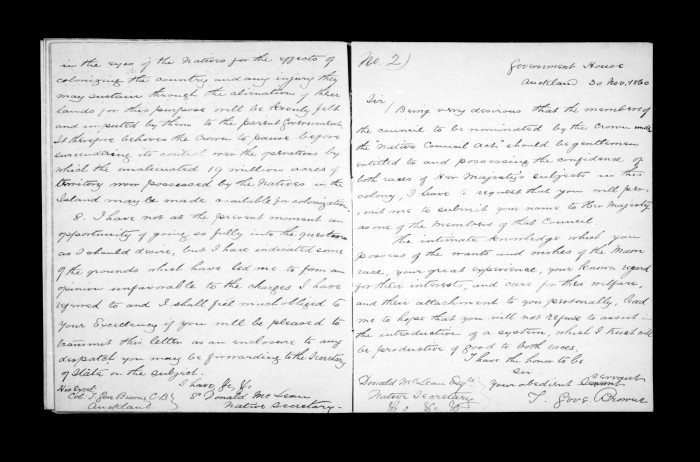 in the eyes of the Natives for the effects of
colonizing the country and any injury they
may sustain through the alienation of their
lands for this purpose will be keenly felt
and imputed by them to the parent Government
It therefore behoves the Crown to pause before
surrendering its control over the operations by
which the unalienated 19 million acres of
territory now possessed by the Natives in the
Island may be made available for colonization
8. I have not at the present moment an
opportunity of going so fully into the questions
as I should desire, but I have indicated some
of the grounds which have led me to form an
opinion unfavorable to the charges I have
referred to and I shall feel much obliged to
your Excellency if you will be pleased to
transmit this letter as an enclosure to any
dispatch you may be forwarding to the Secretary
of State on the subject.
I have &c, &c.
His Excel.
Col. T. Gore Browne C.B.
Auckland
Sd Donald McLean
Native Secretary.
No 2)
Government House
Auckland 30 Nov. 1860
Sir/
Being very desirous that the members of
the council to be nominated by the Crown under
the "Native Council Act" should be gentlemen
entitled to and possessing the confidence of
both races of Her Majesty's subjects in this
colony, I have to request that you will per-
mit me to submit your name to Her Majesty
as one of the Members of that Council.
The intimate knowledge which you
possess of the wants and wishes of the Maori
race, your great experience, your known regard
for their interests, and care for their welfare,
and their attachment to you personally, lead
me to hope that you will not refuse to assist in
the introduction of a system, which I trust will
be productive of good to both races.
I have the honor to be
Sir
Your obedient servant
T. Gore Browne
Donald McLean Esqre
Native Secretary
&c &c &c